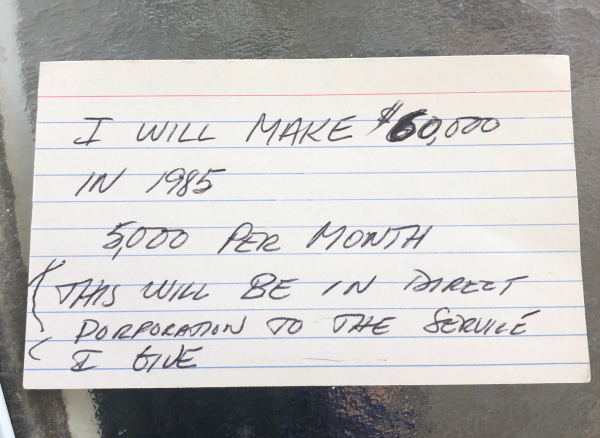 I WILL MAKE $60,000
IN 1985
5,000 PER MONTH
THIS WILL BE IN DIRECT
PORPORATION TO THE SERVICE
I GIVE